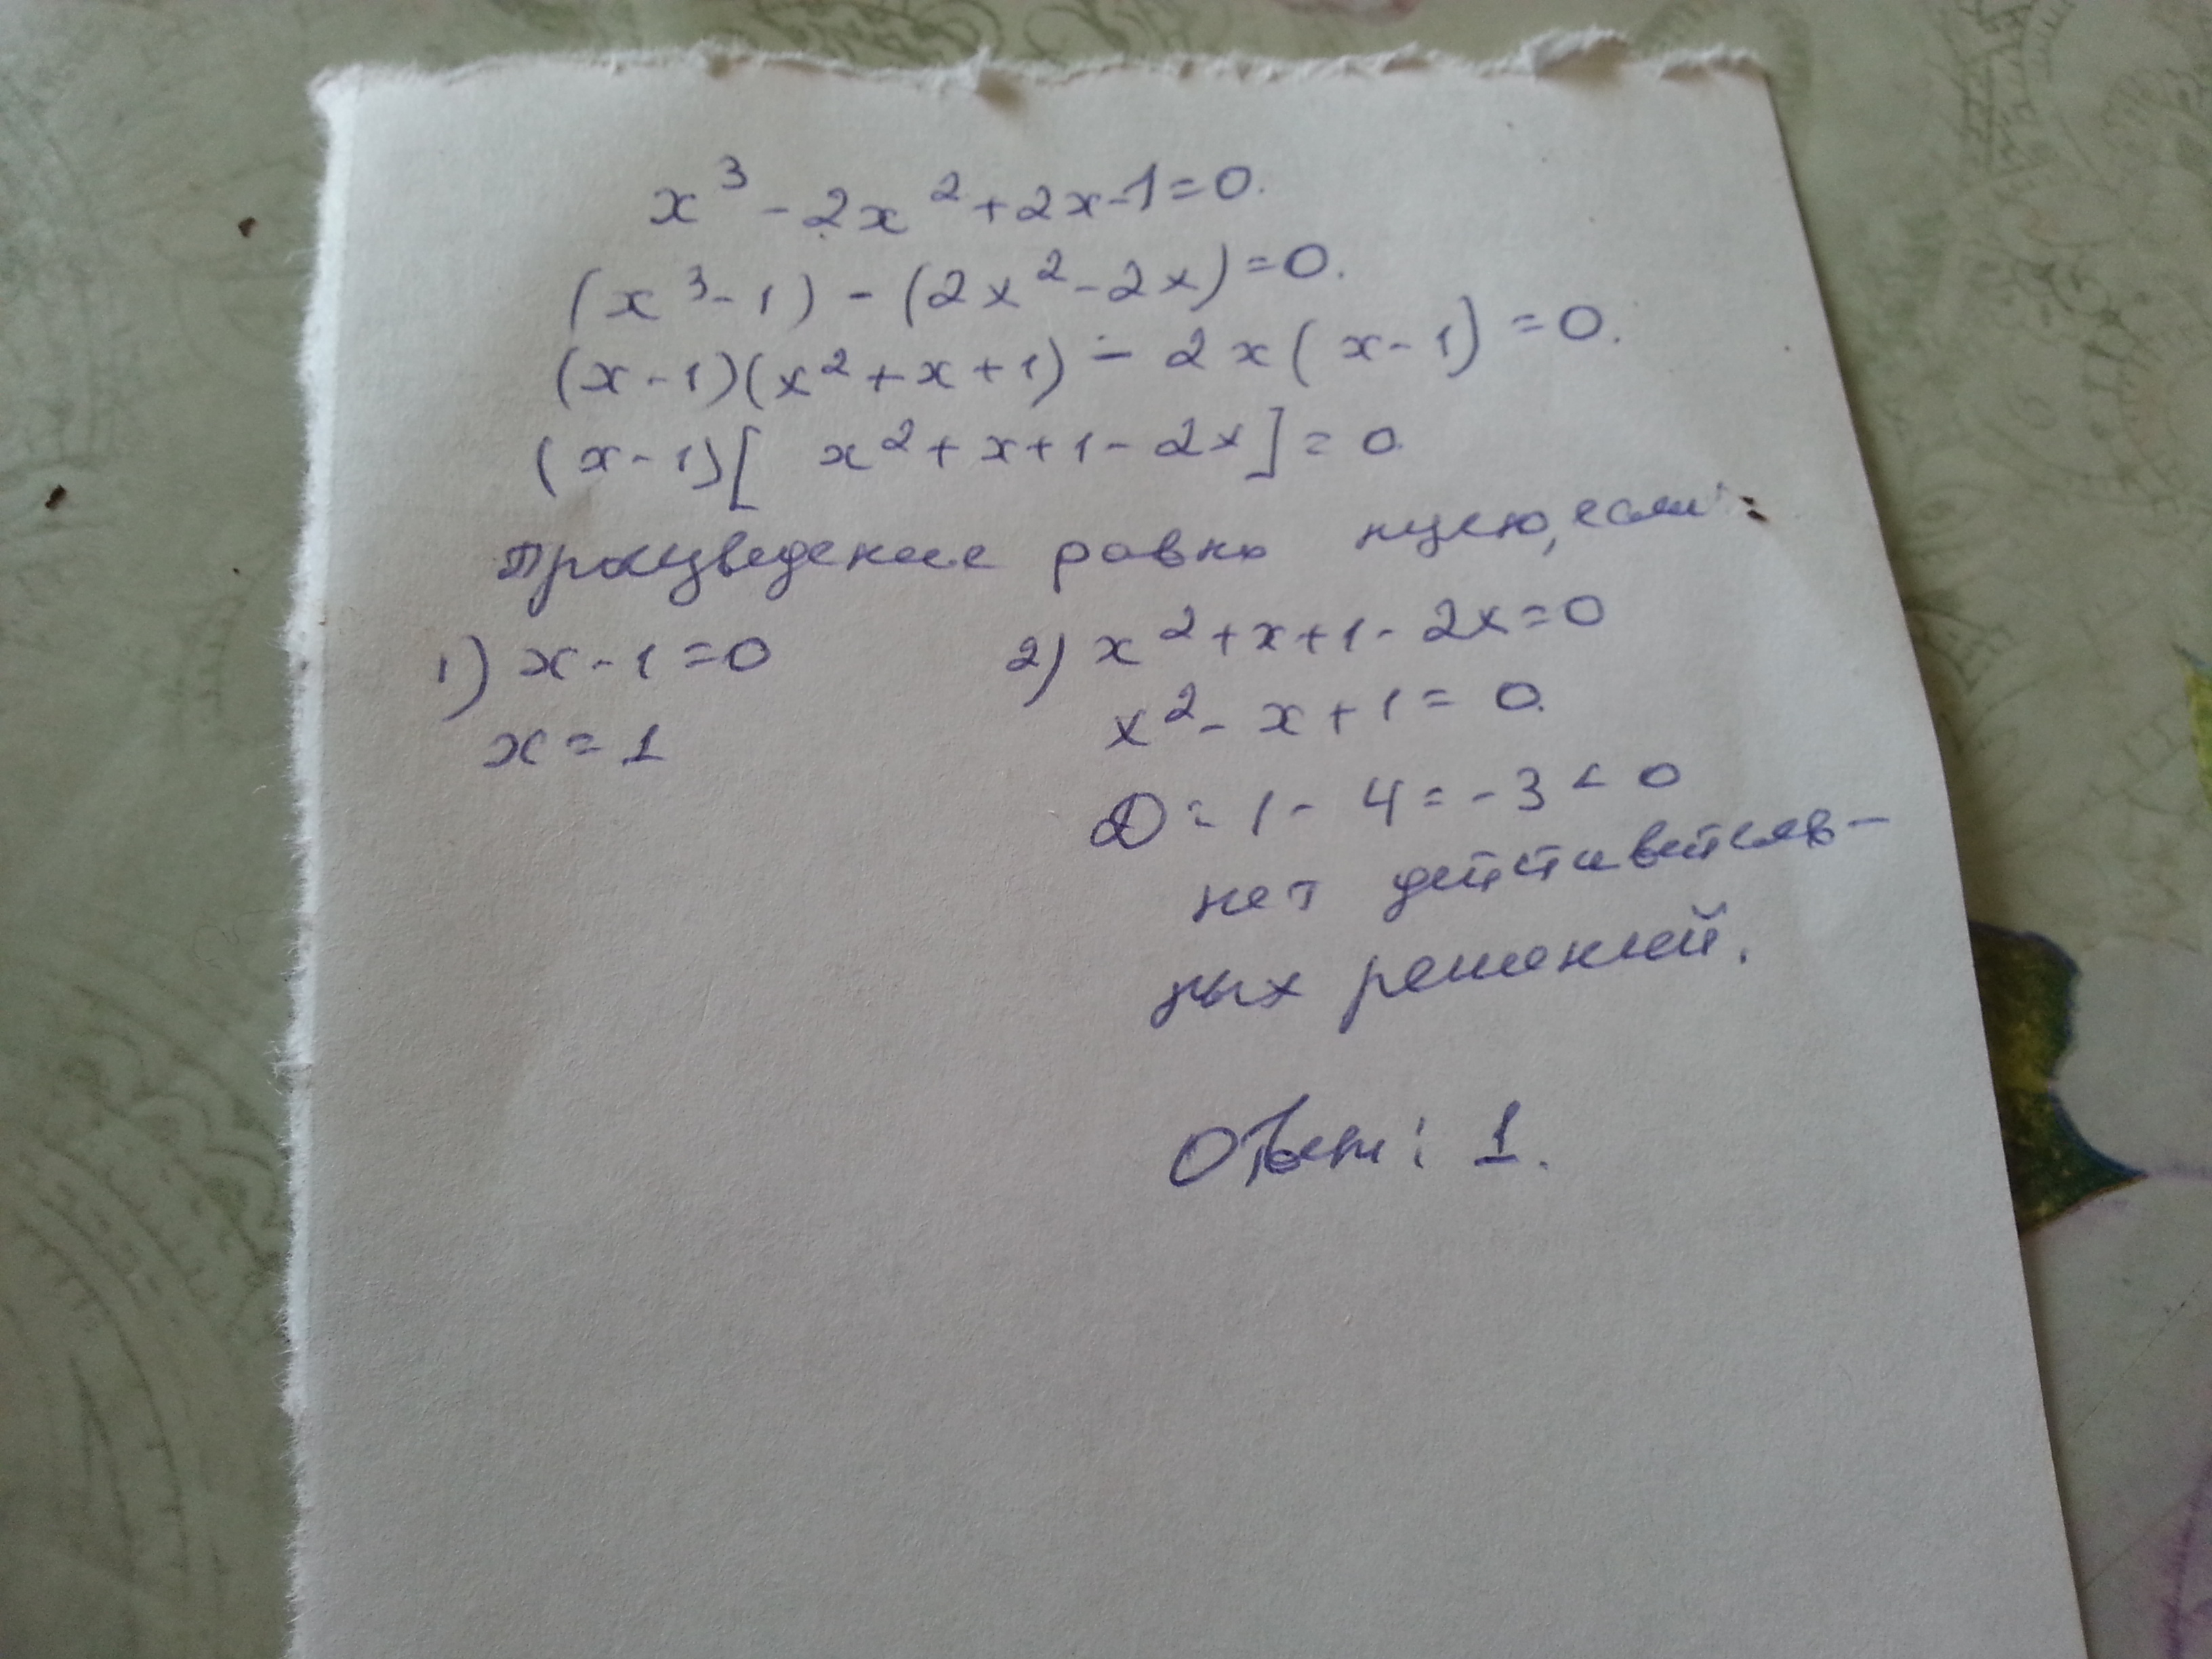 x³ - 2x² + 2x - 1 = 0.
(x³ - 1) - (2x² - 2x) = 0.
(x - 1)(x² + x + 1) - 2x(x - 1) = 0.
(x - 1)[ x² + x + 1 - 2x] = 0
Произведение равно нулю, если:
1) x - 1 = 0
x = 1
2) x² + x + 1 - 2x = 0
x² - x + 1 = 0.
D = 1 - 4 = -3 < 0
нет действитель-
ных решений.
Ответ: 1.